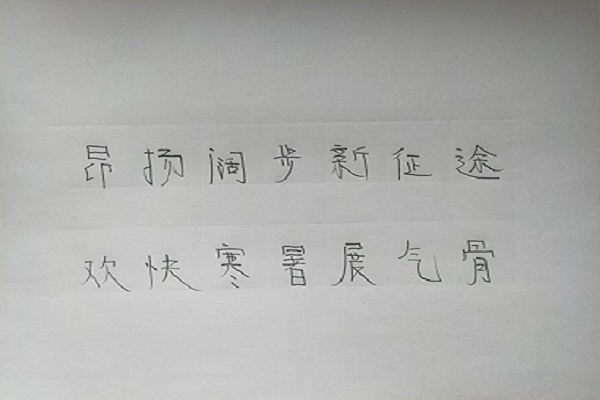 昂扬阔步新征途
欢快寒暑展气骨